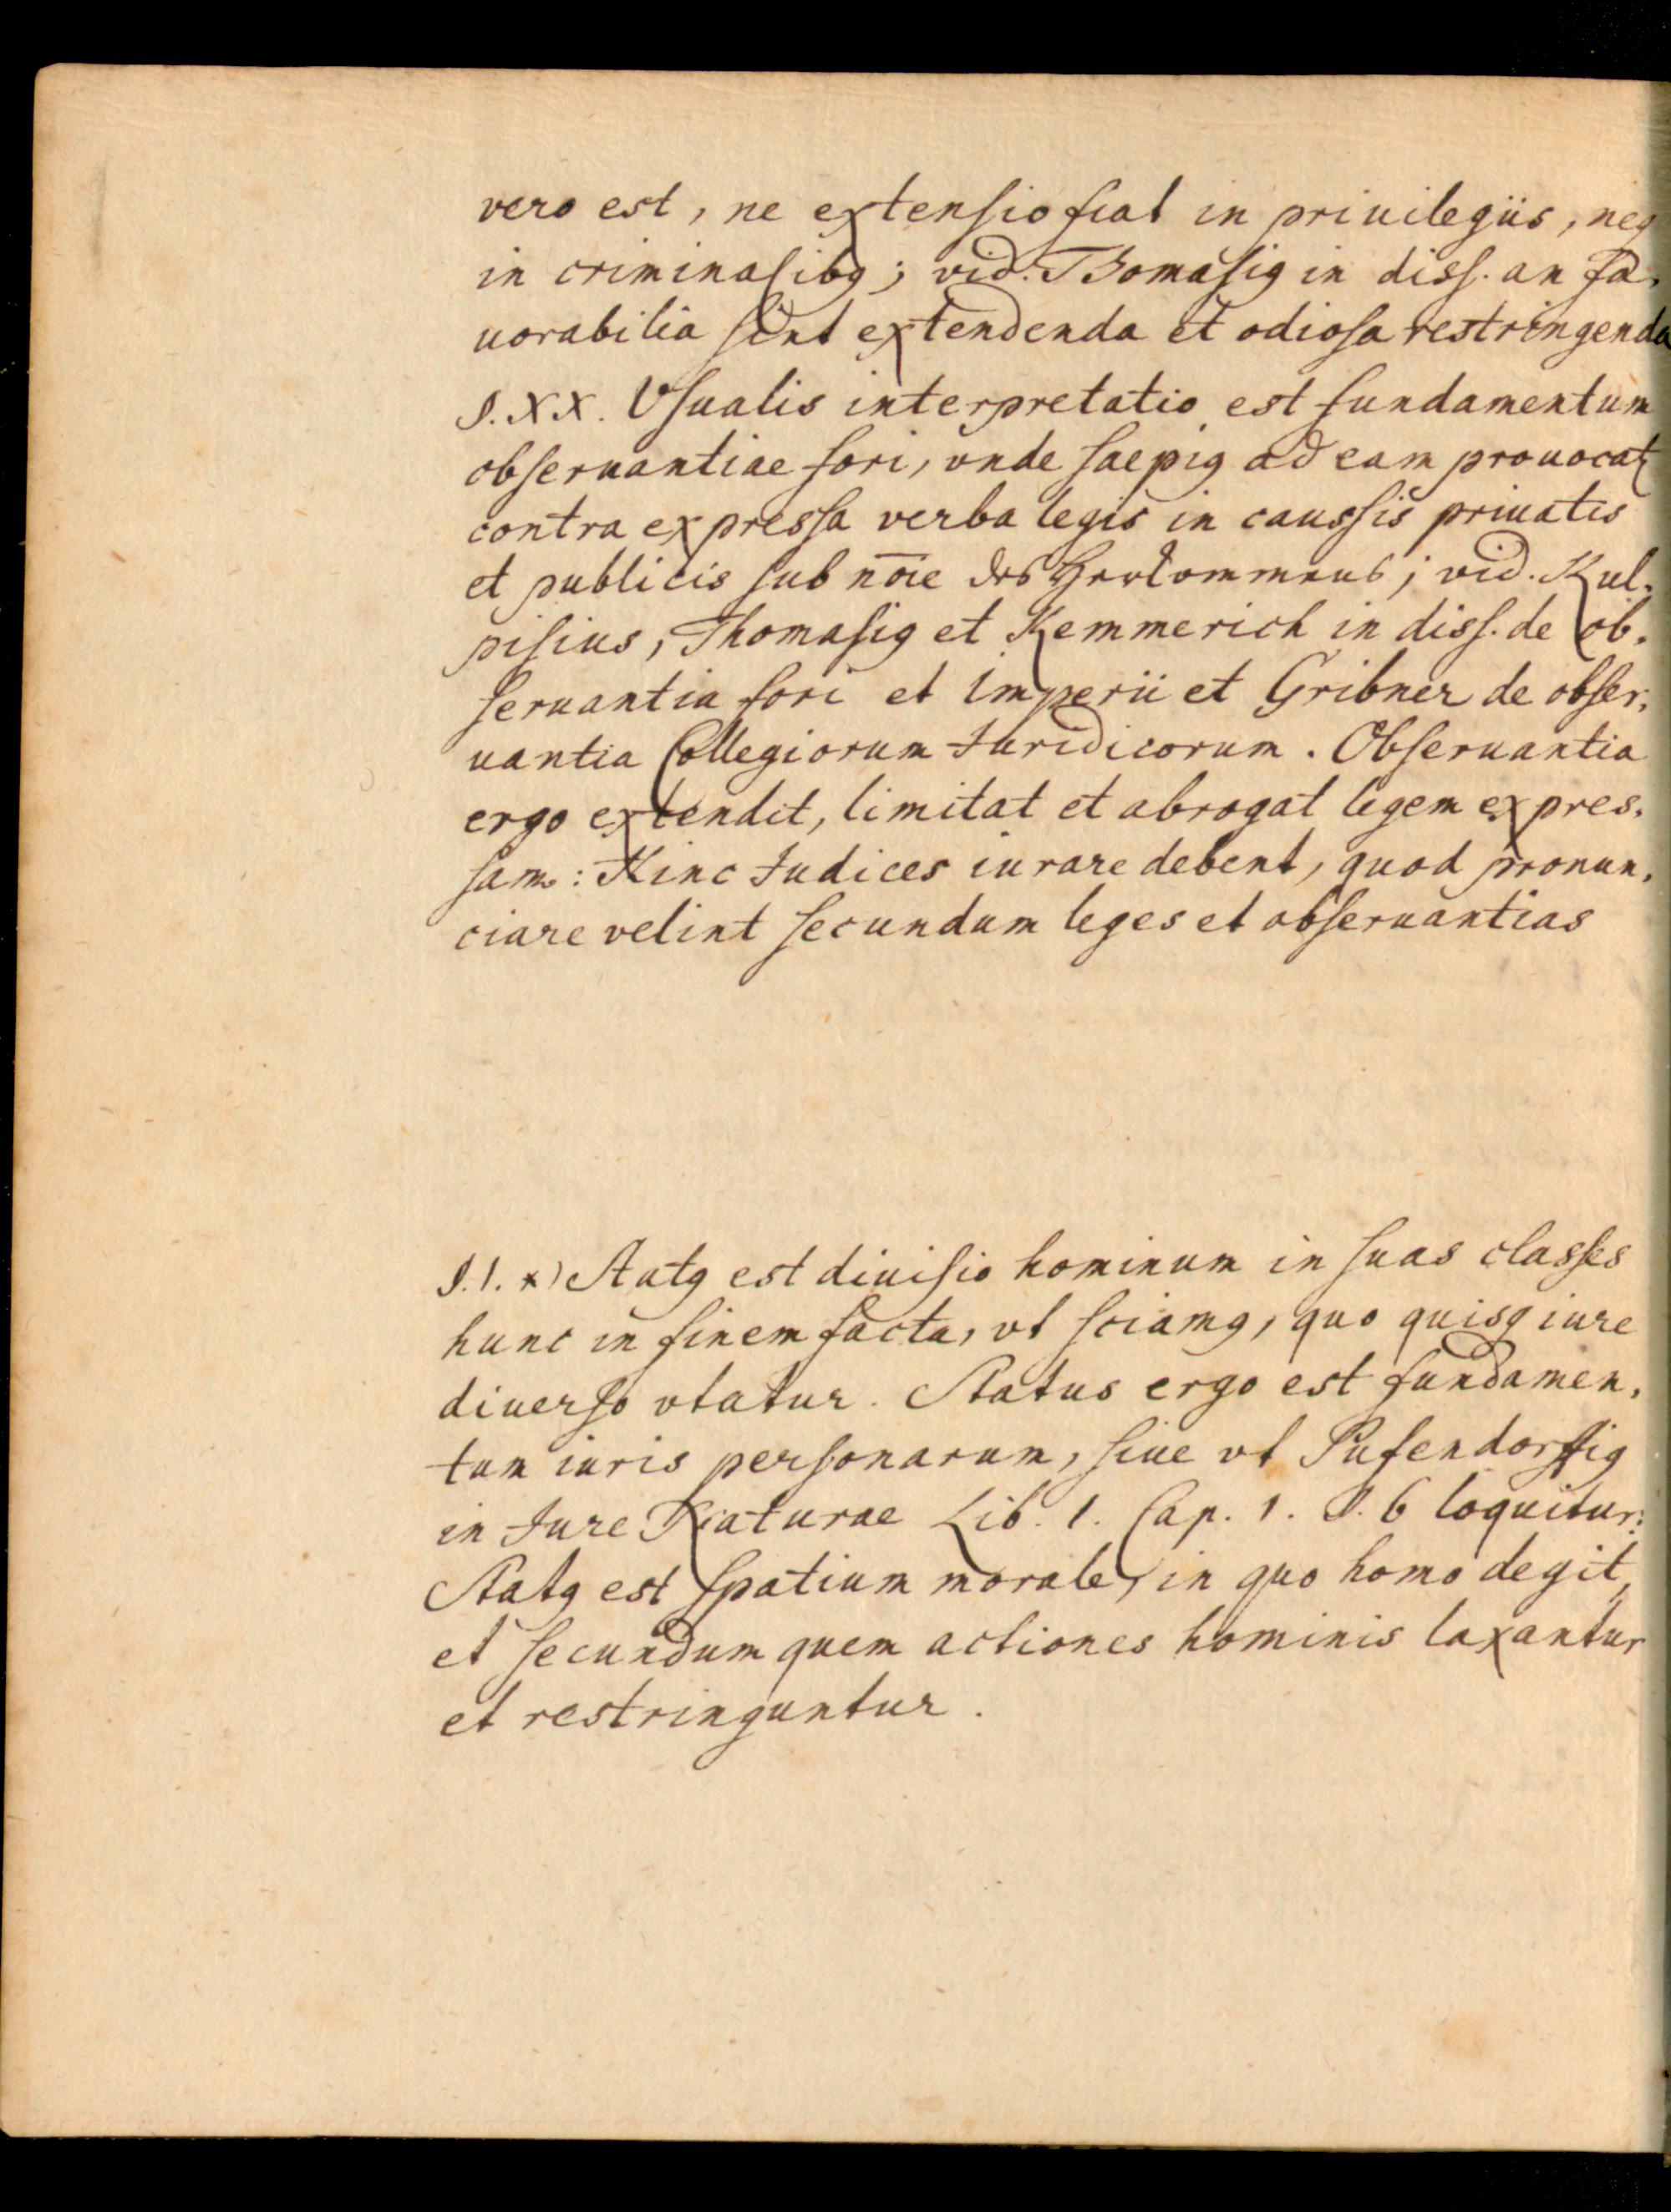 vero est, ne extensio fiat in priuilegiis, neq
in criminalibg; vid. Thomasig in diss. an fa,
uorabilia sint extendenda et odiosa restringenda
§. XX. Vsualis interpretatio est fundamentum
obseruantiae fori, vnde saepig ad eam prouocat
contra expressa verba legis in caussis priuatis
et publicis sub nōie des Herkommens; vid. Kul,
pisius, Thomasig et Kemmerich in diss. de ob,
seruantia fori et Imperii et Gribner de obser,
uantia Collegiorum Iuridicorum. Obseruantia
ergo extendit, limitat et abrogat legem expres,
sam: Hinc Iudices iurare debent, quod pronun,
ciare velint secundum leges et obseruantias
§. 1. *) Statg est diuisio hominum in suas classes
hunc in finem facta, vt sciamg, quo quisq iure
diuerso vtatur. Status ergo est fundamen,
tum iuris personarum, siue vt Pufendorffig
in Iure Naturae Lib. 1. Cap. 1. §. 6 loquitur:
Statg est spatium morale, in quo homo degit,
et secundum quem actiones hominis laxantur
et restringuntur.